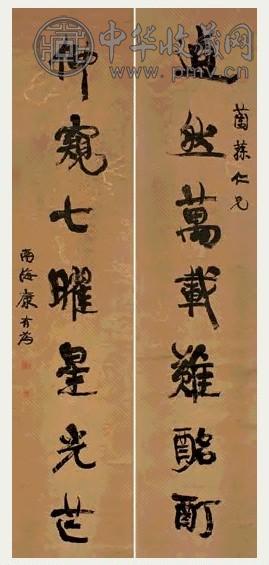 中华收藏网
www.pmv.cn
然萬載難酩酊
蓀仁兄
窺七曜星光芒
南海康有為